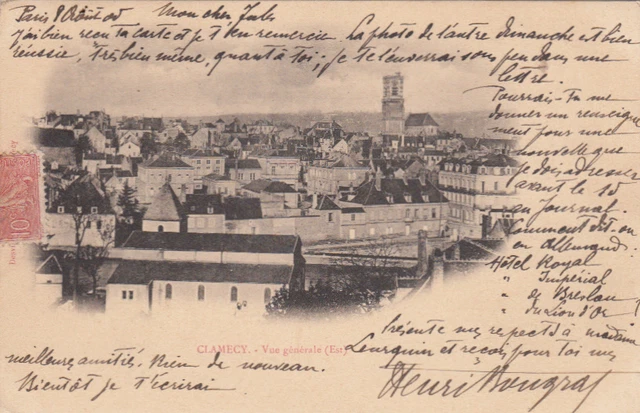 Paris 8 Août 05 Mon cher Jules
J'ai bien reçu ta carte et je t'en remercie. La photo de l'autre dimanche est bien
réussie, très bien même, quant à toi, je te l'enverrai sous peu dans une
lettre.
Pourrais-tu me
donner un renseigne
ment pour une
nouvelle que
je dois adresser
avant le 10
au Journal.
Comment dit-on
en Allemand:
Hôtel Royal
" Impérial
" de Breslau
" du Lion d'Or
CLAMECY. - Vue générale (Est)
Présente mes respects à madame
et reçois pour toi mes
meilleures amitiés. Rien de nouveau.
Bientôt je t'écrirai
Henri
10